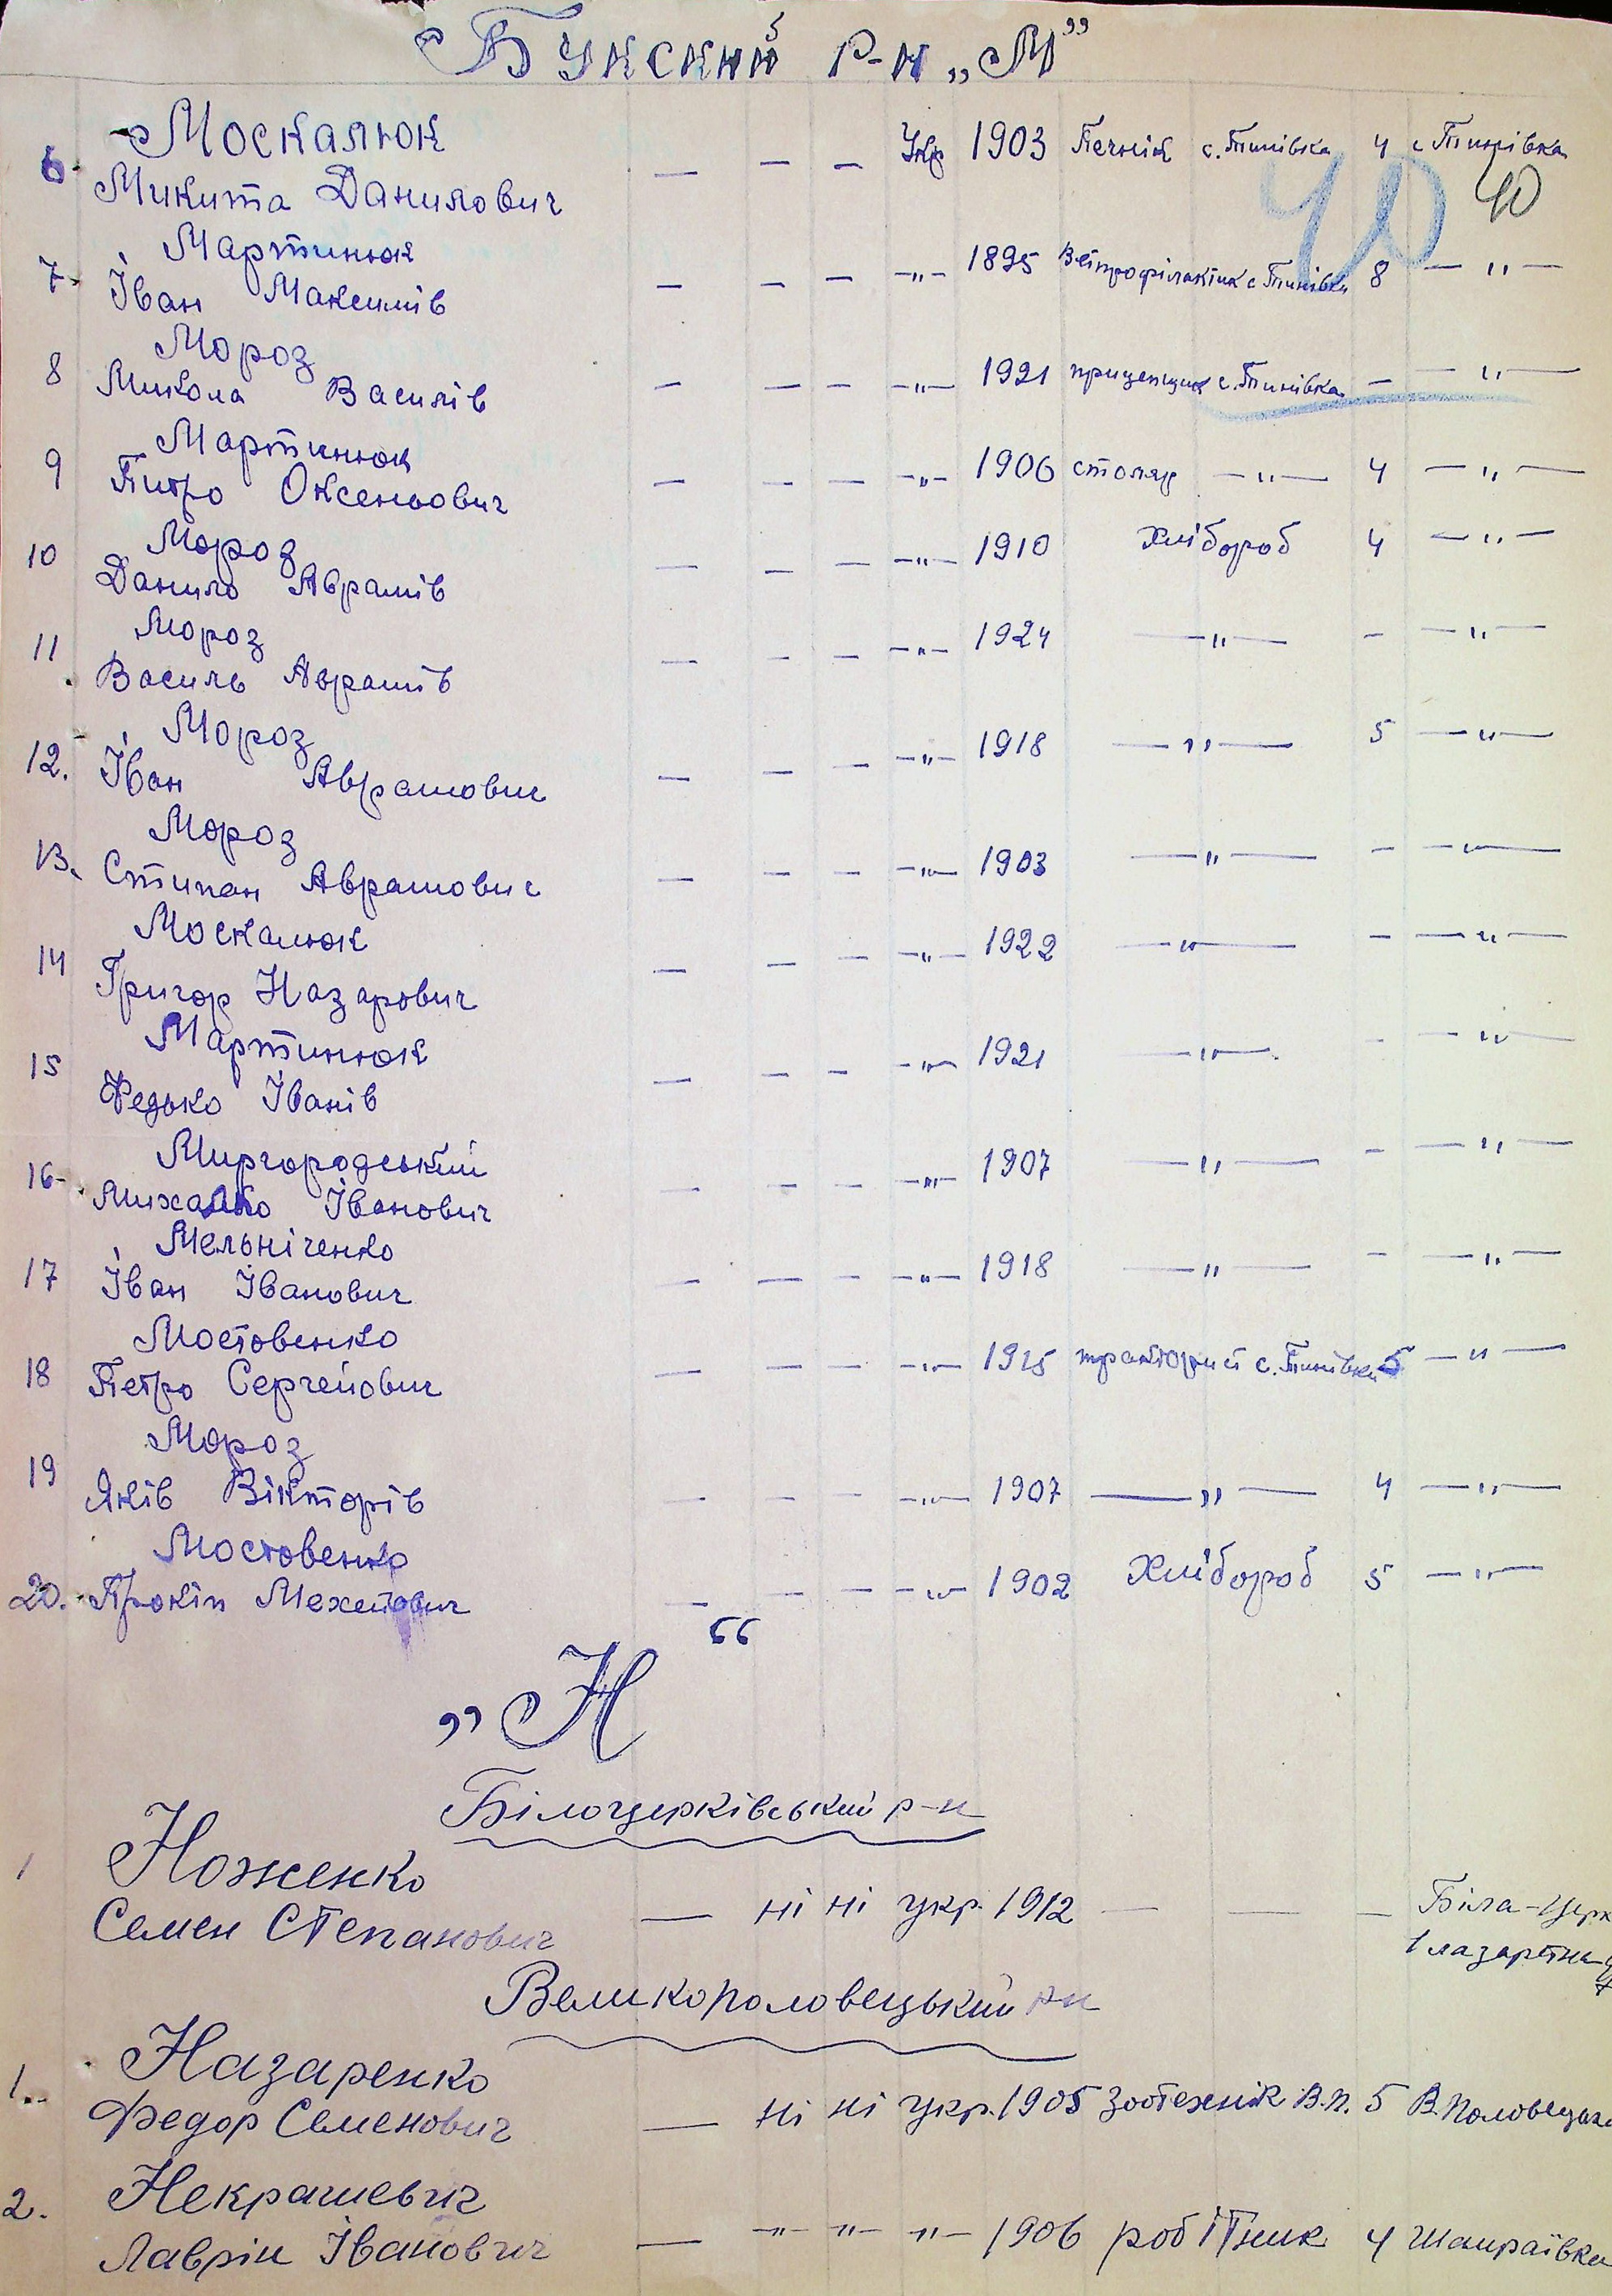 Букский р-н „М”
6. Москалюк
Микита Данилович — — — Укр 1903 Печнік с. Тинівка 4 с Тинівка
40 40
7. Мартинюк
Іван Максимів — — — —"— 1895 Ветпрофілактик с Тинівка 8 —"—
8 Мороз
Микола Василів — — — —"— 1921 прицепщик с. Тинівка — —"—
9 Мартинюк
Питро Оксеньович — — — —"— 1906 столяр —"— 4 —"—
10 Мороз
Данило Аврамів — — — —"— 1910 Хлібороб 4 —"—
11 Мороз
Василь Аврамів — — — —"— 1924 —"— — —"—
12. Мороз
Іван Аврамович — — — —"— 1918 —"— 5 —"—
13. Мороз
Стипан Аврамович — — — —"— 1903 —"— — —"—
14 Москалюк
Григор Назарович — — — —"— 1922 —"— — —"—
15 Мартинюк
Федько Іванів — — — —"— 1921 —"— — —"—
16 Миргородський
Михалко Іванович — — — —"— 1907 —"— — —"—
17 Мельніченко
Іван Іванович — — — —"— 1918 —"— — —"—
18 Мостовенко
Петро Сергейович — — — —"— 1915 с. Тинівка 5 —"—
19 Мороз
Яків Вікторів — — — —"— 1907 —"— 4 —"—
20. Мостовенко
Прокіп — — — —"— 1902 Хлібороб 5 —"—
„Н“
Білоцерківський р-н
1 Ноженко
Семен Степанович — ні ні укр. 1912 — — — Біла-Церк
1 лазаретна
Великополовецький рн
1. Назаренко
Федор Семенович — ні ні укр. 1905 Зоотехнік В.П. 5 В. Половецьке
2. Некрашевич
Лаврін Іванович — —"— —"— —"— 1906 робітник 4 Шамраївка